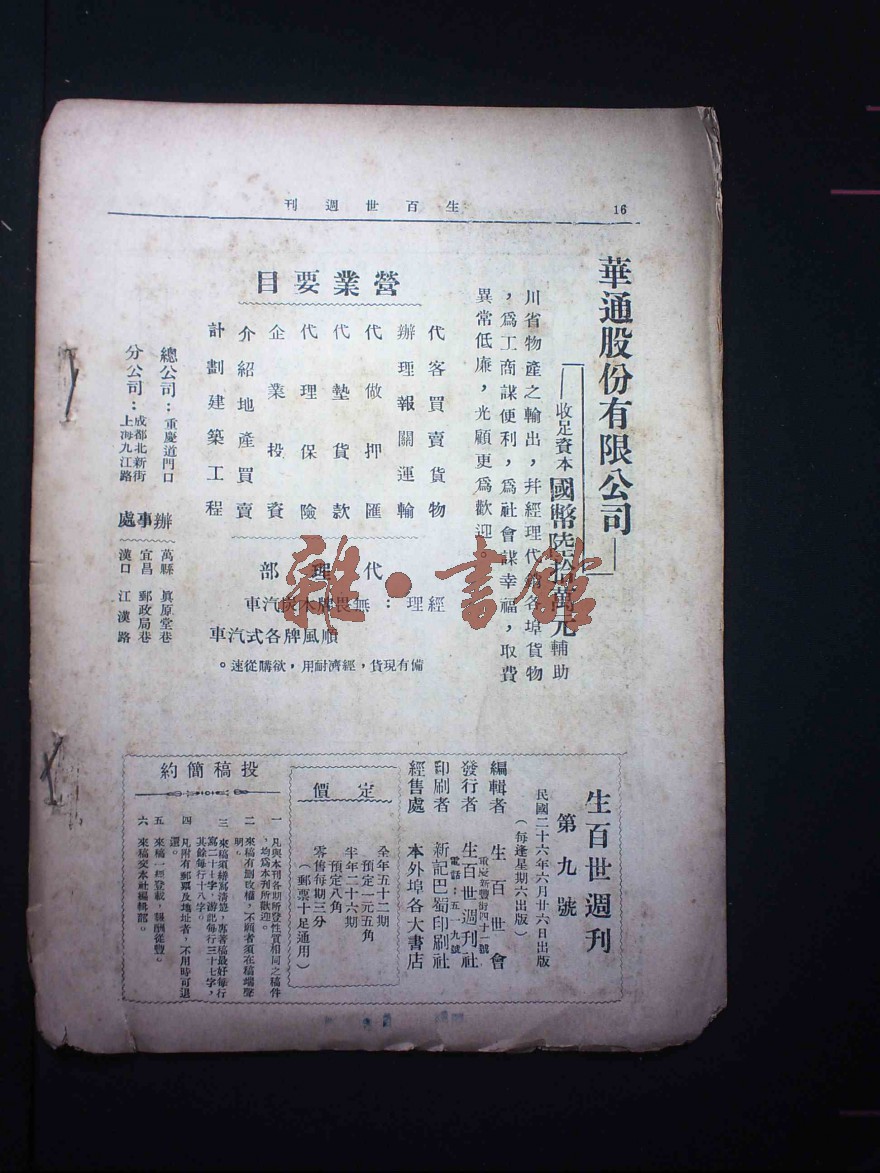 16
生百世週刊
華通股份有限公司
收足資本國幣陸拾萬元輔助
川省物產之輸出，并經理代銷各埠貨物
，爲工商謀便利，爲社會謀幸福，取費
異常低廉，光顧更爲歡迎。
營業要目
代客買賣貨物
辦理報關運輸
代做押匯
代墊貨款
代理保險
企業投資
介紹地產買賣
計劃建築工程
代理部
經理：無畏牌木炭汽車
順風牌各式汽車
備有現貨，經濟耐用，欲購從速。
總公司：重慶道門口
分公司：成都北新街
上海九江路
辦事處
萬縣 眞原堂巷
宜昌 郵政局巷
漢口 江漢路
雜·書館
生百世週刊
第九號
民國二十六年六月廿六日出版
（每逢星期六出版）
編輯者 生百世會
發行者 生百世週刊社
重慶新豐街四十一號
電話：五一九號
印刷者 新記巴蜀印刷社
經售處 本外埠各大書店
定價
全年五十二期
預定一元五角
半年二十六期
預定八角
零售每期三分
（郵票十足通用）
投稿簡約
一 凡與本刊各期所登性質相同之稿件
，均爲本刊所歡迎。
二 來稿有刪改權，不願者須在稿端聲
明。
三 來稿須繕寫清楚，專著稿最好每行
寫二十七字，游記每行三十七字，
其餘每行十八字。
四 凡附有郵票及地址者，不用時可退
還。
五 來稿一經登載，報酬從豐。
六 來稿交本社編輯部。